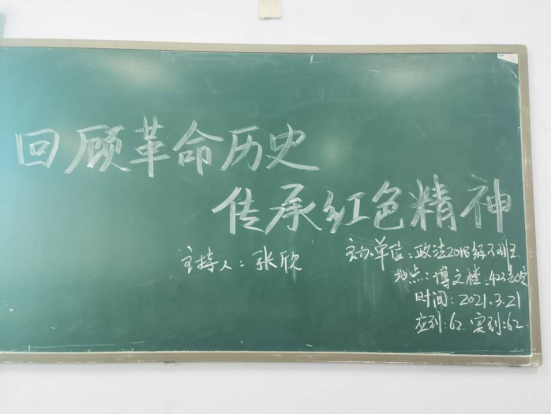 回顾革命历史
传承红色精神
主持人：张欣
主办单位：政法2018级
地点：博文楼
时间：2021.3.21
应到：62 实到：62